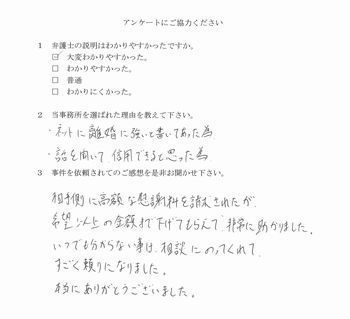 アンケートにご協力ください
1 弁護士の説明はわかりやすかったですか。
☑ 大変わかりやすかった。
□ わかりやすかった。
□ 普通
□ わかりにくかった。
2 当事務所を選ばれた理由を教えて下さい。
・ネットに離婚に強いと書いてあった為
・話を聞いて、信用できると思った為
3 事件を依頼されてのご感想を是非お聞かせ下さい。
相手側に高額な慰謝料を請求されたが、
希望以上の金額まで下げてもらえて、非常に助かりました。
いつでも分からない事は、相談にのってくれて、
すごく頼りになりました。
本当にありがとうございました。